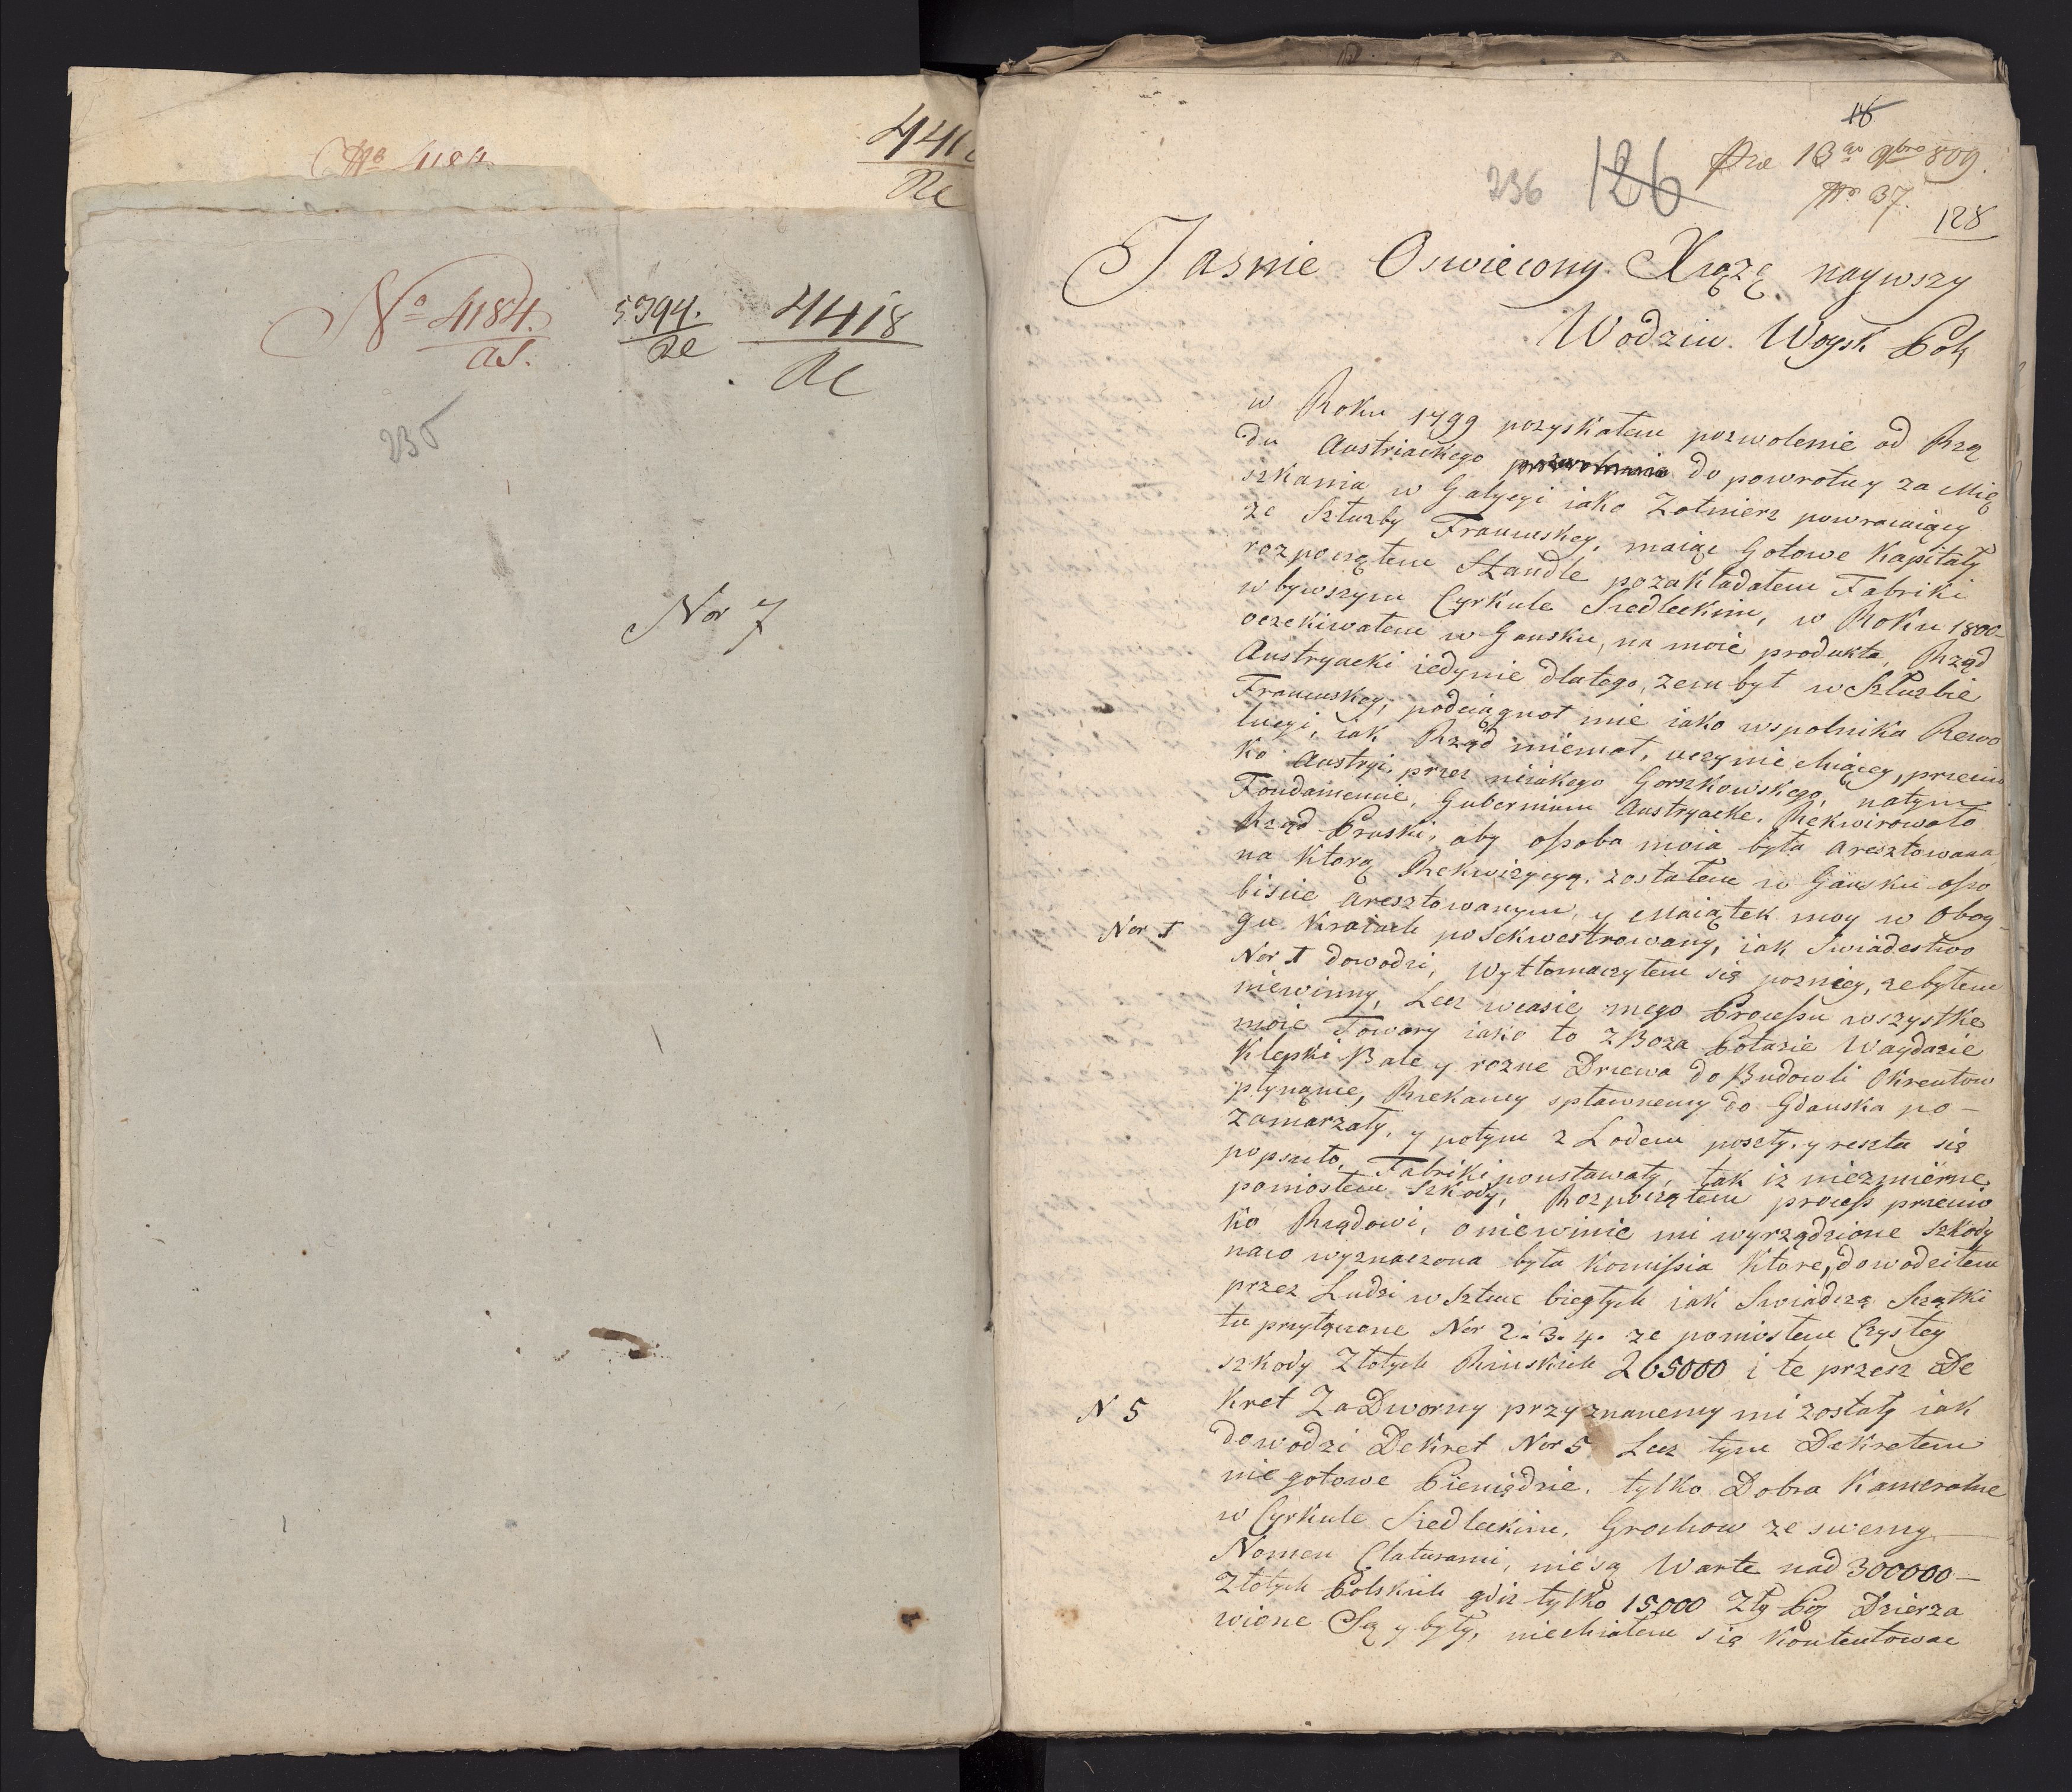 No 4184
441
Rc
No 4184.
ad.
5394.
Rc
4418
Rc
235
Nor 7
18
Pre 13go 9bro 809.
Nro 37.
236 126
128
Jasnie Oswiecony Xiążę naywszy
Wodziu. Woysk Pol:
w Roku 1799 pozyskałem pozwolenie od Rzą
du Austriackego do powrotu y za Mię
szkania w Galycyi iako Zołnierz powracaiący
ze Szłuzby Francuskey, maiąc Gotowe Kapitały
rozpocząłem Handle pozakładałem Fabriki
w bywszym Cyrkule Siedleckim, w Roku 1800
oczekiwałem w Gansku, na moie produkta, Rząd
Austryacki iedynie dlatego, zem był w Szłuzbie
Francuskey, podciągnoł mie iako wspolnika Rewo
lucyi, iak Rząd miemał, uczynić chiącey, przeciw
ko Austryi, przez nieiakego Gorszkowskego, natym
Fondamencie, Gubernium Austryacke. Rekwirowało
Rząd Pruski, aby ossoba moia była aresztowana,
na Ktorą Rekwizycyą. zostałem w Gansku osso
biscie aresztowanym, y Maiątek moy w Oboy
Nor 1 gu Kraiach posekwestrowany, iak Swiadestwo
Nor 1 dowodzi, wytłomaczyłem się pozniey, zebyłem
niewinny, Lecz wcasie mego Processu wszystke
moie Towary iako to zBoza Potazie Waydasie
Klepki Bale y rozne Drzewa do Budowli Okrentow
płynące, Rzekamy spławnemy do Gdanska po-
zamarzały, y potym z Lodem poszły. y reszta się
popsuło, Fabriki poustawały, tak iz niezmierne
poniosłem szkody, Rozpocząłem process przeciw
ko Rządowi, o niewinie mi wyrządzione szkody
naco wyznaczona była Komissia Ktore, dowodziłem
przez Ludzi w Sztuce biegłych iak Swiadczą Sczątki
tu przyłączone Nor 2. 3. 4. ze poniosłem Czystey
szkody Złotych Rinskich 265000 i te przesz De
N 5 kret ZaDworny przyznanemy mi zostały iak
dowodzi Dekret Nor 5 Lecz tym Dekretem
nie gotowe Pieniądzie. tylko Dobra Kameralne
w Cyrkule Siedleckim, Grochow ze swemy
Nomen Claturami, nie są Warte nad 300000-
Złotych Polskich gdiz tylko 15000 Złą Pol Dzierza
wione Są y były, niechiałem się Kontentowac